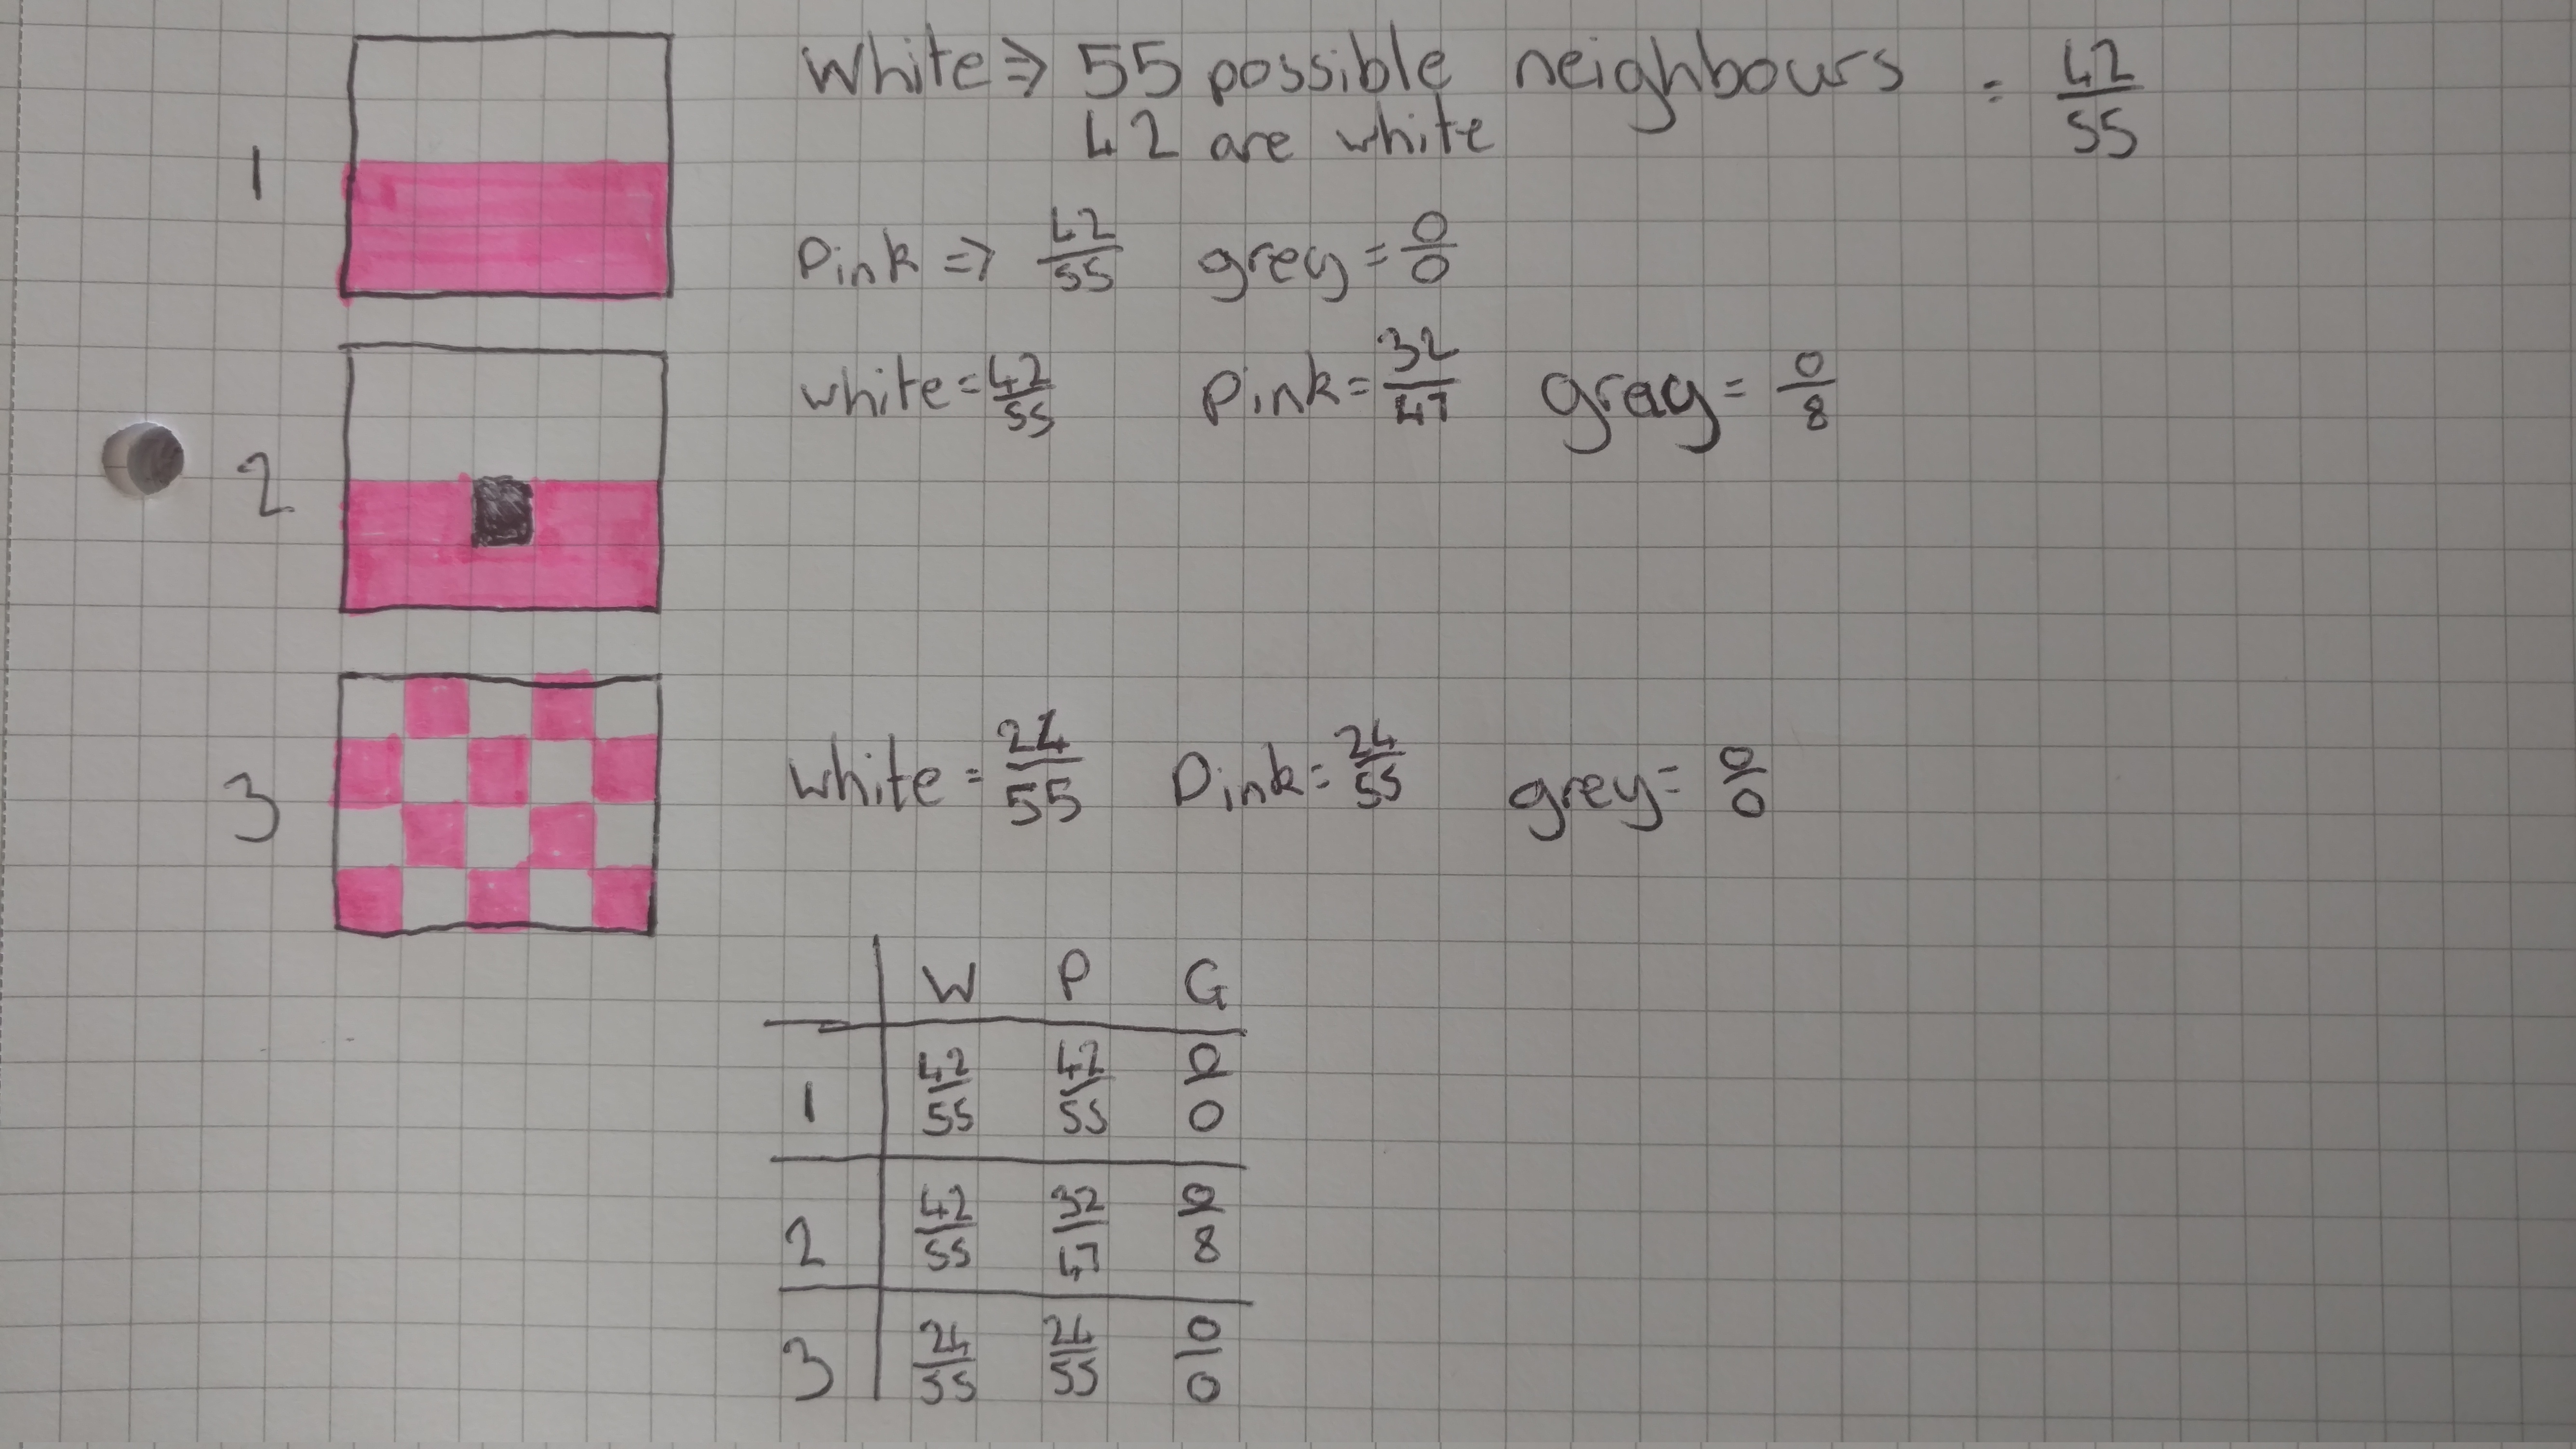 1
White ⇒ 55 possible neighbours = 42/55
42 are white
Pink ⇒ 42/55 grey = 0/0
2
white = 42/55 Pink = 32/47 gray = 0/8
3
white = 24/55 Pink = 24/55 grey = 0/0
W P G
1 42/55 42/55 0/0
2 42/55 32/47 0/8
3 24/55 24/55 0/0